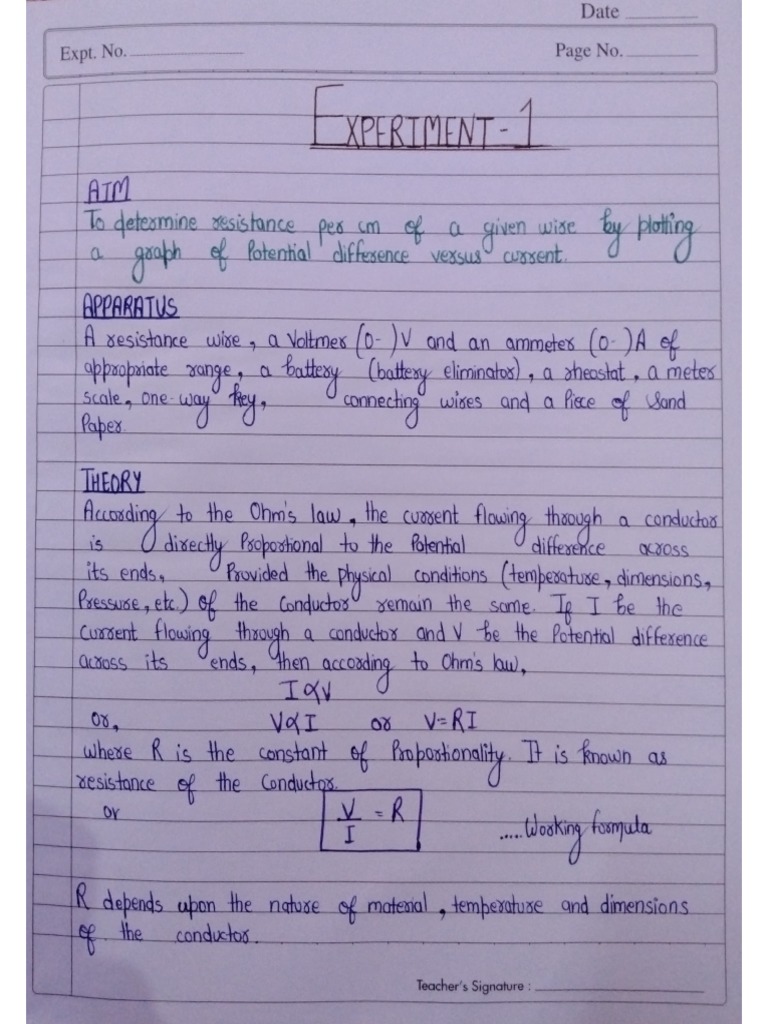 Date
Expt. No.
Page No.
EXPERIMENT-1
AIM
To determine resistance per cm of a given wire by plotting
a graph of Potential difference versus current.
APPARATUS
A resistance wire, a Voltmer (0- )V and an ammeter (0- )A of
appropriate range, a battery (battery eliminator), a rheostat, a meter
scale, one-way key, connecting wires and a Piece of Sand
Paper.
THEORY
According to the Ohm's law, the current flowing through a conductor
is directly Proportional to the Potential difference across
its ends, Provided the physical conditions (temperature, dimensions,
Pressure, etc.) of the Conductor remain the same. If I be the
current flowing through a conductor and V be the Potential difference
across its ends, then according to Ohm's law,
I ∝ V
or, V ∝ I or V = RI
where R is the constant of Proportionality. It is known as
resistance of the Conductor.
or V/I = R ..... Working formula
R depends upon the nature of material, temperature and dimensions
of the conductor.
Teacher's Signature :